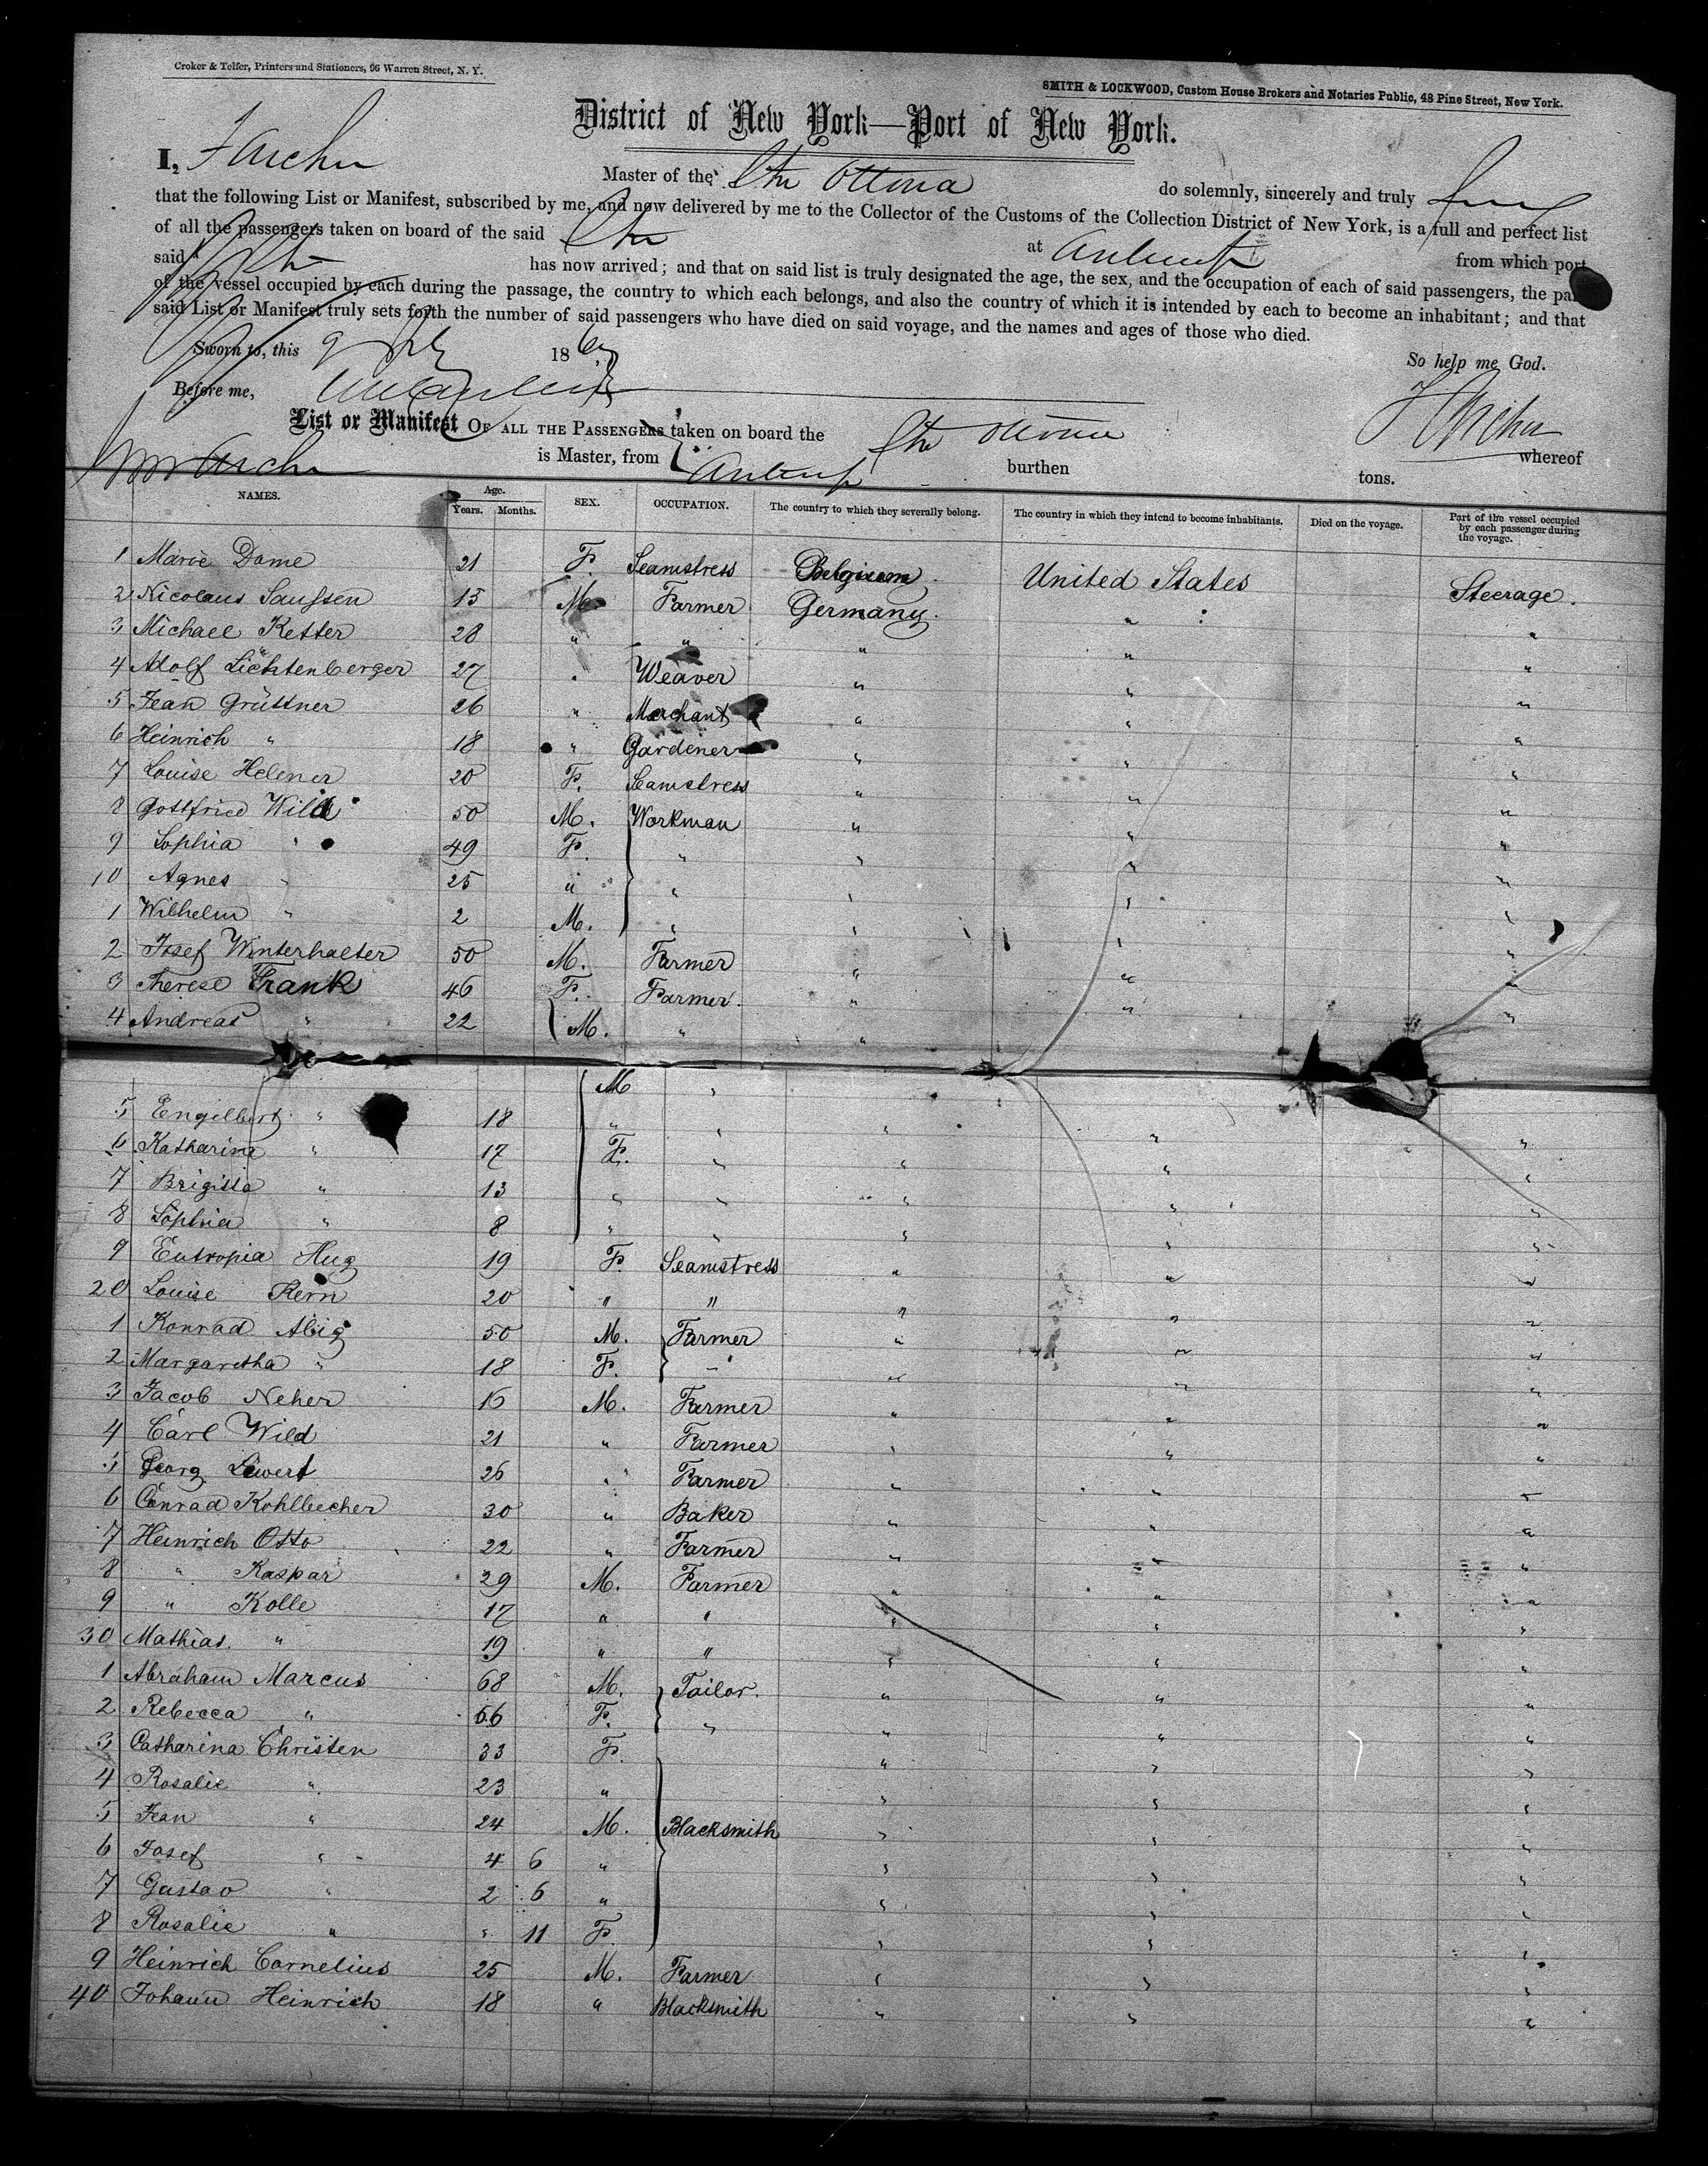 Croker & Telfer, Printers and Stationers, 96 Warren Street, N. Y.
SMITH & LOCKWOOD, Custom House Brokers and Notaries Public, 48 Pine Street, New York.
District of New York—Port of New York.
I, Master of the Str Ottowa do solemnly, sincerely and truly
that the following List or Manifest, subscribed by me, and now delivered by me to the Collector of the Customs of the Collection District of New York, is a full and perfect list
of all the passengers taken on board of the said Str at Antwerp from which port
said Str has now arrived; and that on said list is truly designated the age, the sex, and the occupation of each of said passengers, the part
of the vessel occupied by each during the passage, the country to which each belongs, and also the country of which it is intended by each to become an inhabitant; and that
said List or Manifest truly sets forth the number of said passengers who have died on said voyage, and the names and ages of those who died.
Sworn to, this 9 186 So help me God.
Before me,
List or Manifest OF ALL THE PASSENGERS taken on board the Str whereof
is Master, from Antwerp burthen tons.
NAMES. Age. Years. Months. SEX. OCCUPATION. The country to which they severally belong. The country in which they intend to become inhabitants. Died on the voyage. Part of the vessel occupied by each passenger during the voyage.
1 Marie Dome 21 F. Seamstress Belgium United States Steerage.
2 Nicolaus Saussen 15 M. Farmer Germany. " "
3 Michael Ketter 28 " " " " "
4 Adolf Lichtenberger 27 " Weaver " " "
5 Jean Grüttner 26 " Merchant " " "
6 Heinrich " 18 " Gardener " " "
7 Louise Helener 20 F. Seamstress " " "
8 Gottfried Wild 50 M. Workman " " "
9 Sophia " 49 F. " " " "
10 Agnes " 25 " " " " "
1 Wilhelm " 2 M. " " " "
2 Josef Winterhalter 50 M. Farmer " " "
3 Therese Frank 46 F. Farmer. " " "
4 Andreas " 22 M. " "
M "
5 Engelbert " 18 " " " " "
6 Katharina " 17 F. " " " "
7 Brigitta " 13 " " " " "
8 Sophia " 8 " " " " "
9 Eutropia Hug 19 F. Seamstress " " "
20 Louise Kern 20 " " " " "
1 Konrad Abig 50 M. Farmer " " "
2 Margaretha " 18 F. " " " "
3 Jacob Neher 16 M. Farmer " " "
4 Carl Wild 21 " Farmer " " "
5 Georg Lewert 26 " Farmer " " "
6 Conrad Kohlbecher 30 " Baker " " "
7 Heinrich Otto 22 " Farmer " " "
8 " Kaspar 29 M. Farmer " " "
9 " Kolle 17 " " " " "
30 Mathias " 19 " " " " "
1 Abraham Marcus 68 M. Tailor. " " "
2 Rebecca " 66 F. " " " "
3 Catharina Christen 33 F. " " "
4 Rosalie " 23 " " " "
5 Jean " 24 M. Blacksmith " " "
6 Josef " 4 6 " " " "
7 Gustav " 2 6 " " " "
8 Rosalie " " 11 F. " " "
9 Heinrich Cornelius 25 M. Farmer " " "
40 Johann Heinrich 18 " Blacksmith " " "